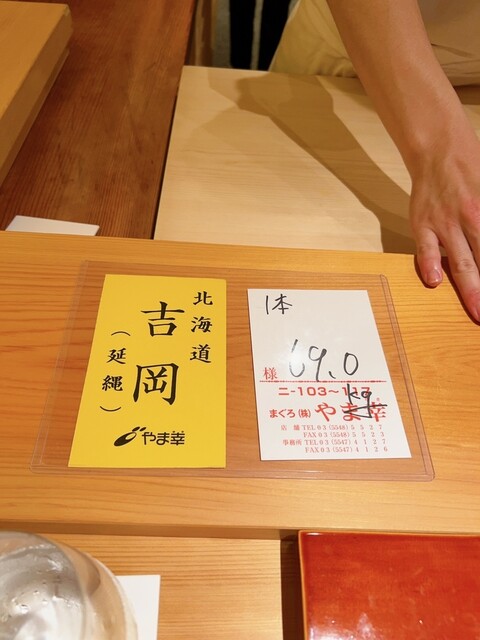 北海道
吉岡
（延縄）
やま幸
1本
69.0
kg
様
ニ-103～113
まぐろ(株)やま幸
店舗 TEL 03 (5548) 5527
FAX 03 (5548) 5523
事務所 TEL 03 (5547) 4127
FAX 03 (5547) 4126